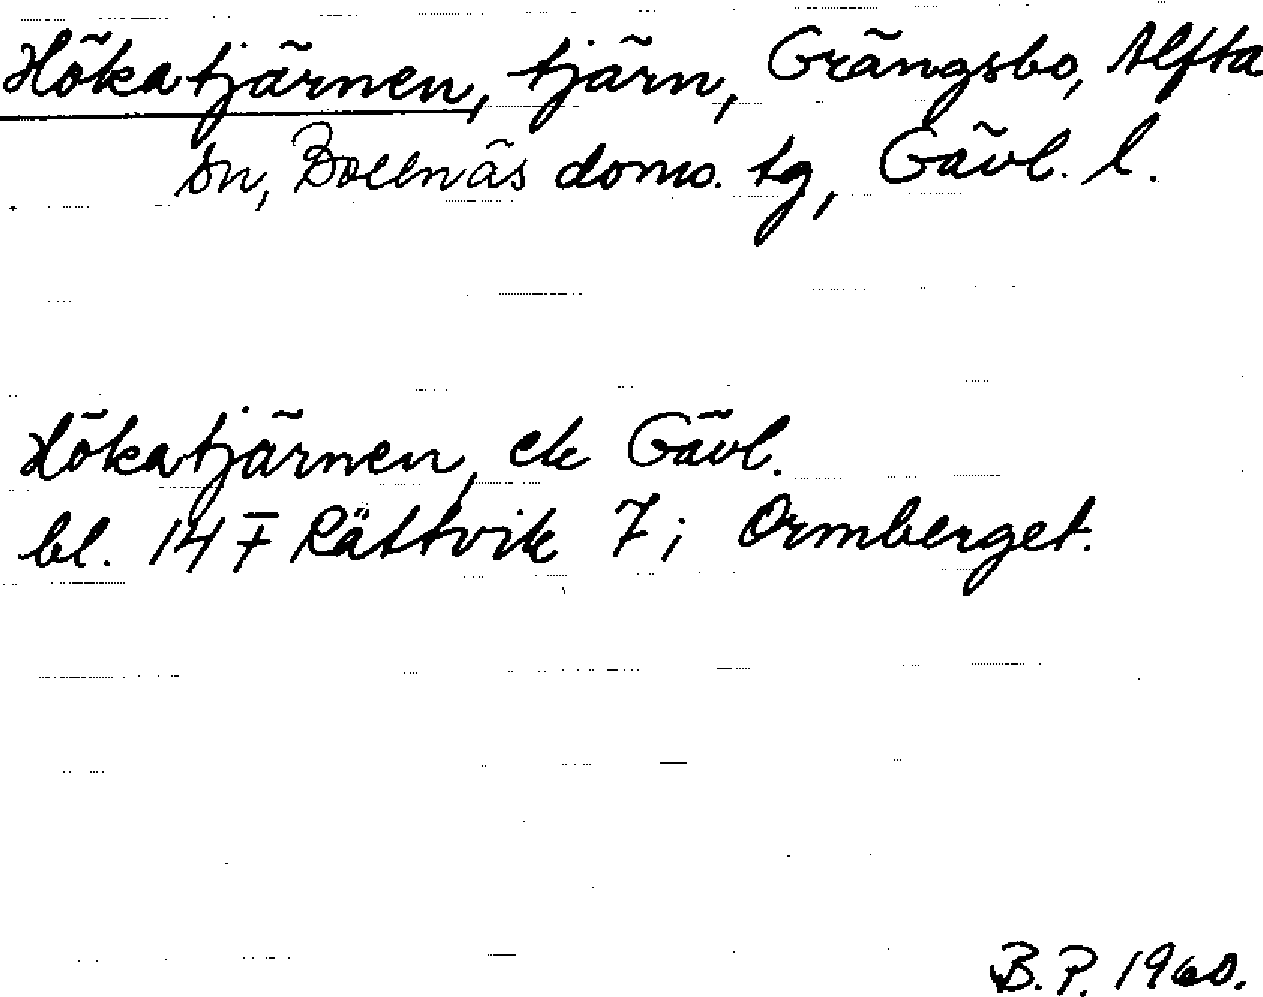 Hökatjärnen, tjärn, Grängsbo, Alfta
sn, Bollnäs doms. tg, Gävl. l.
Hökatjärnen, ek Gävl.
bl. 14 F Rättvik 7; Ormberget.
B.P. 1960.